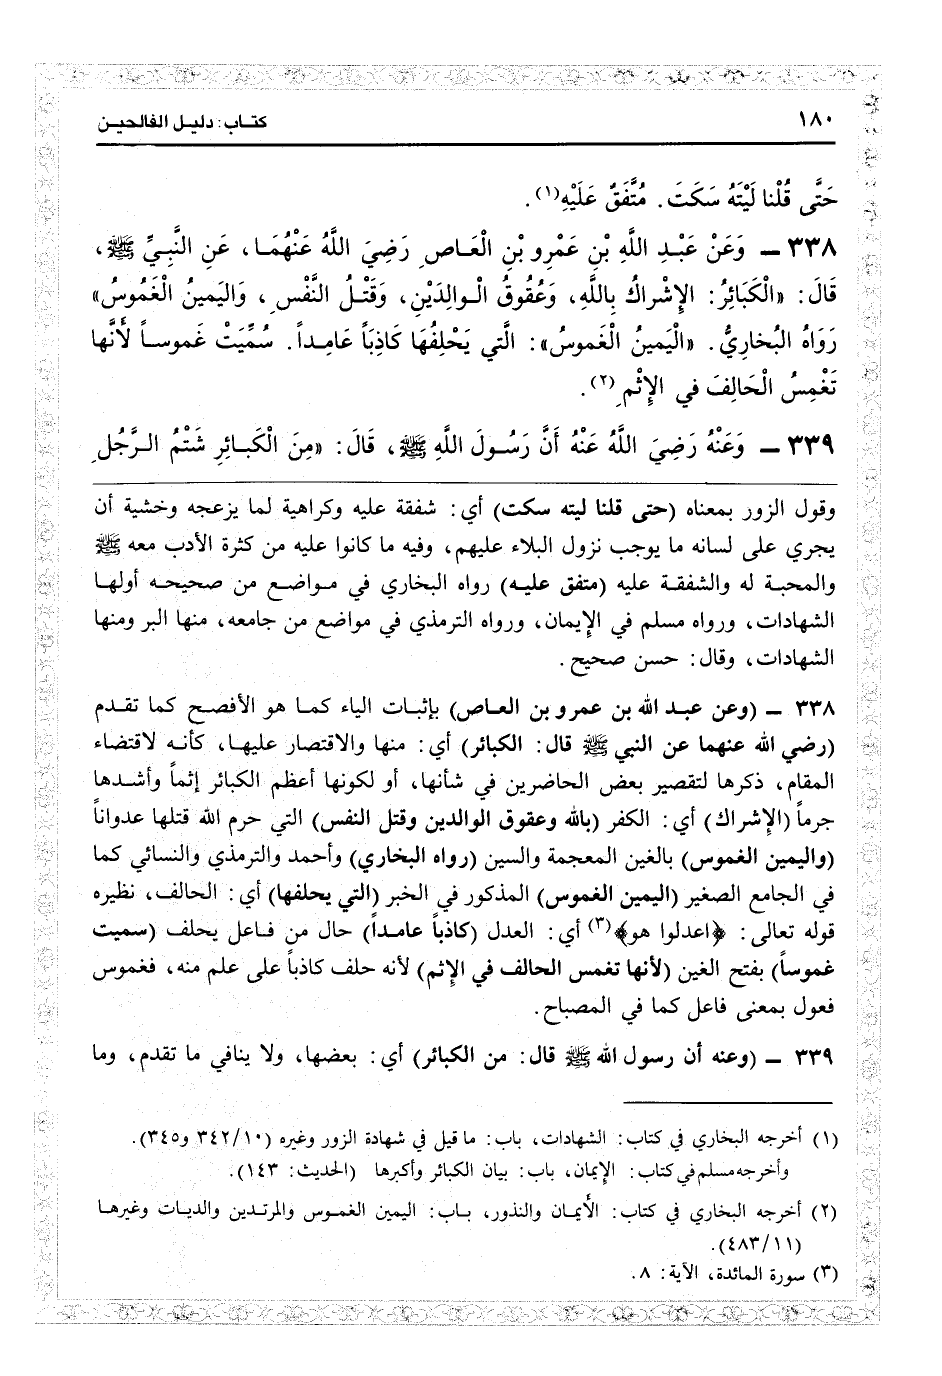 ١٨٠ كتاب: دليل الفالحين
حَتَّى قُلْنا لَيْتَهُ سَكَتَ. مُتَّفَقٌ عَلَيْهِ(١).
٣٣٨ ــ وَعَنْ عَبْدِ اللَّهِ بْنِ عَمْرِو بْنِ الْعَاصِ رَضِيَ اللَّهُ عَنْهُمَا، عَنِ النَّبِيِّ ﷺ،
قَالَ: «الْكَبَائِرُ: الإِشْراكُ بِاللَّهِ، وَعُقوقُ الْوالِدَيْنِ، وَقَتْلُ النَّفْسِ، وَاليَمينُ الْغَموسُ»
رَوَاهُ البُخاريُّ. «الْيَمينُ الْغَموسُ»: الَّتي يَحْلِفُهَا كَاذِبَاً عَامِداً. سُمِّيَتْ غَموساً لأَنَّها
تَغْمِسُ الْحَالِفَ في الإِثْمِ(٢).
٣٣٩ ــ وَعَنْهُ رَضِيَ اللَّهُ عَنْهُ أَنَّ رَسُولَ اللَّهِ ﷺ، قَالَ: «مِنَ الْكَبائِرِ شَتْمُ الرَّجُلِ
وقول الزور بمعناه (حتى قلنا ليته سكت) أي: شفقة عليه وكراهية لما يزعجه وخشية أن
يجري على لسانه ما يوجب نزول البلاء عليهم، وفيه ما كانوا عليه من كثرة الأدب معه ﷺ
والمحبة له والشفقة عليه (متفق عليه) رواه البخاري في مواضع من صحيحه أولها
الشهادات، ورواه مسلم في الإيمان، ورواه الترمذي في مواضع من جامعه، منها البر ومنها
الشهادات، وقال: حسن صحيح.
٣٣٨ ــ (وعن عبد الله بن عمرو بن العاص) بإثبات الياء كما هو الأفصح كما تقدم
(رضي الله عنهما عن النبي ﷺ قال: الكبائر) أي: منها والاقتصار عليها، كأنه لاقتضاء
المقام، ذكرها لتقصير بعض الحاضرين في شأنها، أو لكونها أعظم الكبائر إثماً وأشدها
جرماً (الإشراك) أي: الكفر (بالله وعقوق الوالدين وقتل النفس) التي حرم الله قتلها عدواناً
(واليمين الغموس) بالغين المعجمة والسين (رواه البخاري) وأحمد والترمذي والنسائي كما
في الجامع الصغير (اليمين الغموس) المذكور في الخبر (التي يحلفها) أي: الحالف، نظيره
قوله تعالى: ﴿اعدلوا هو﴾(٣) أي: العدل (كاذباً عامداً) حال من فاعل يحلف (سميت
غموساً) بفتح الغين (لأنها تغمس الحالف في الإثم) لأنه حلف كاذباً على علم منه، فغموس
فعول بمعنى فاعل كما في المصباح.
٣٣٩ ــ (وعنه أن رسول الله ﷺ قال: من الكبائر) أي: بعضها، ولا ينافي ما تقدم، وما
(١) أخرجه البخاري في كتاب: الشهادات، باب: ما قيل في شهادة الزور وغيره (٣٤٢/١٠ و٣٤٥).
وأخرجه مسلم في كتاب: الإيمان، باب: بيان الكبائر وأكبرها (الحديث: ١٤٣).
(٢) أخرجه البخاري في كتاب: الأيمان والنذور، باب: اليمين الغموس والمرتدين والديات وغيرها
(٤٨٣/١١).
(٣) سورة المائدة، الآية: ٨.